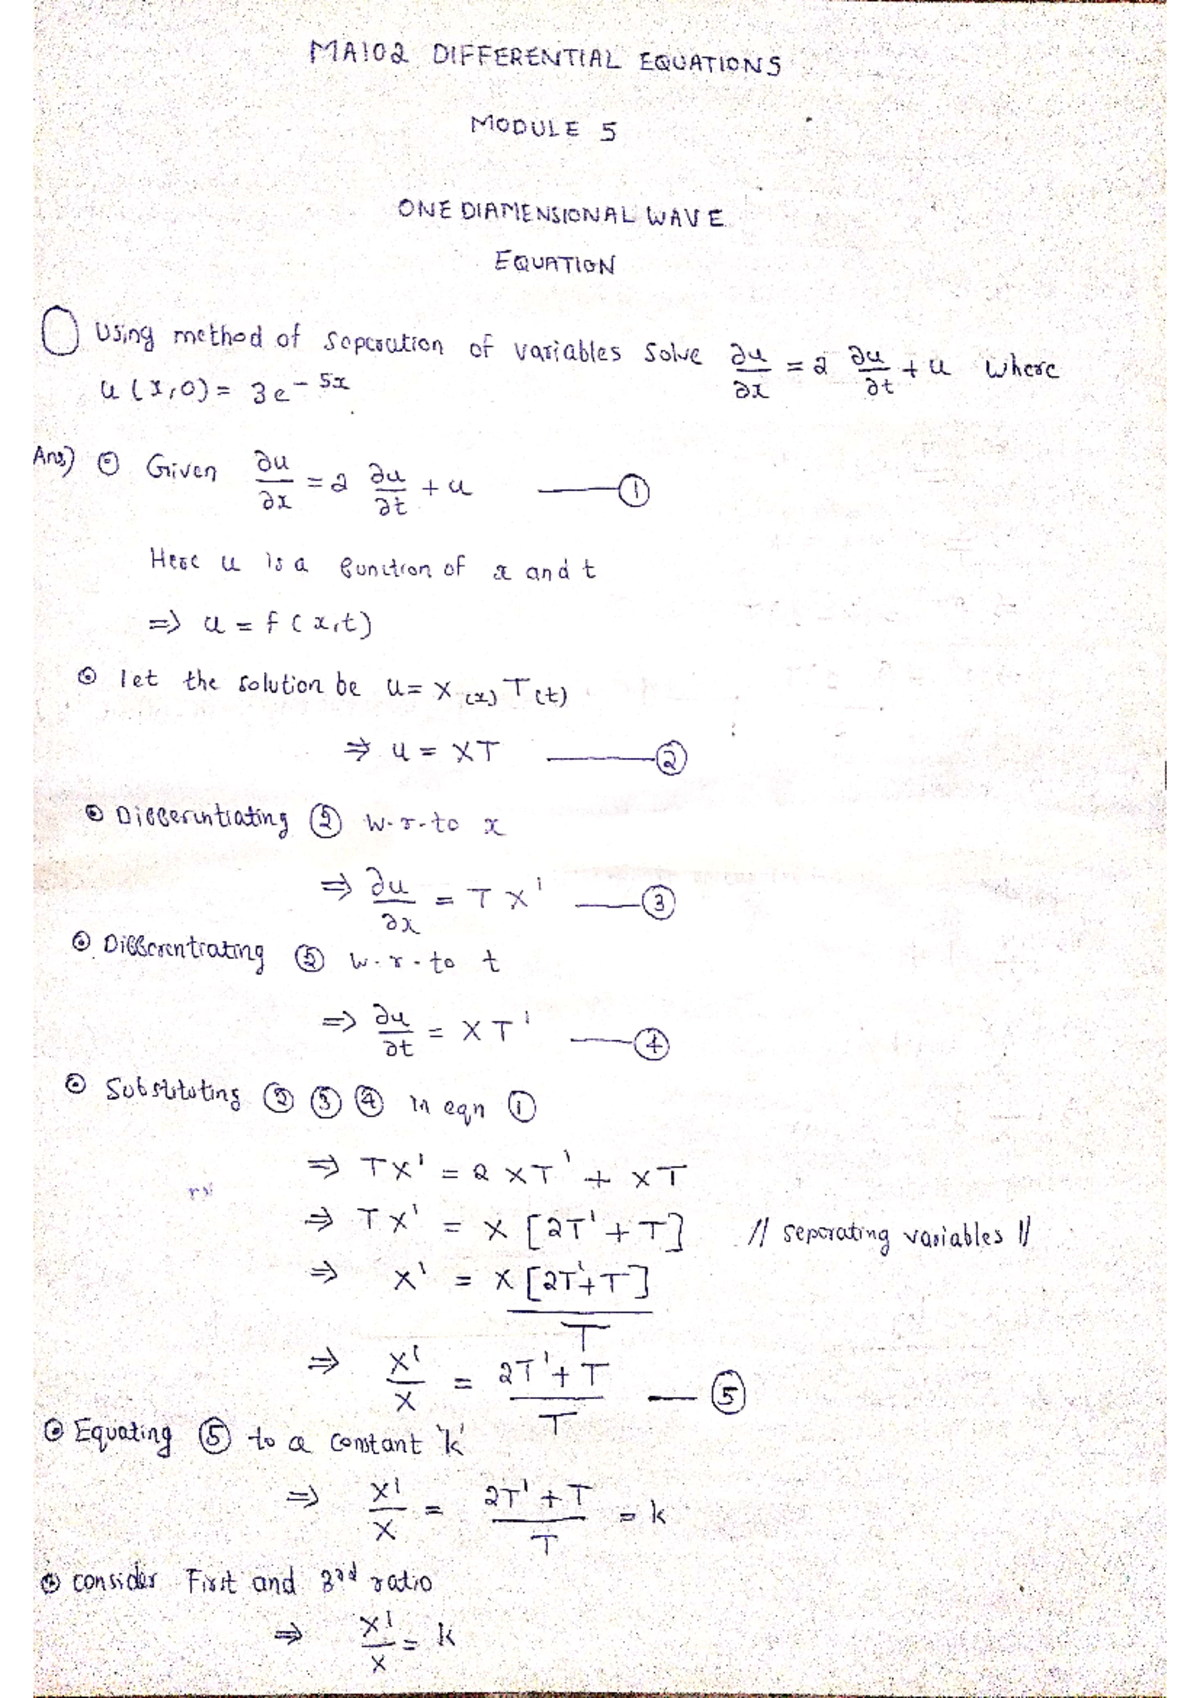 MA102 DIFFERENTIAL EQUATIONS
MODULE 5
ONE DIAMENSIONAL WAVE
EQUATION
Using method of seperation of variables solve ∂u/∂x = 2 ∂u/∂t + u where
u(x,0) = 3e^-5x
Ans) Given ∂u/∂x = 2 ∂u/∂t + u —— ①
Here u is a function of x and t
⇒ u = f(x,t)
let the solution be u = X(x) T(t)
⇒ u = XT —— ②
Differentiating ② w.r.to x
⇒ ∂u/∂x = TX' —— ③
Differentiating ② w.r.to t
⇒ ∂u/∂t = XT' —— ④
Substituting ② ③ ④ in eqn ①
⇒ TX' = 2XT' + XT
⇒ TX' = X [2T' + T] // seperating variables //
⇒ X' = X [2T' + T] / T
⇒ X'/X = 2T' + T / T —— ⑤
Equating ⑤ to a constant 'k'
⇒ X'/X = 2T' + T / T = k
consider First and 3rd ratio
⇒ X'/X = k